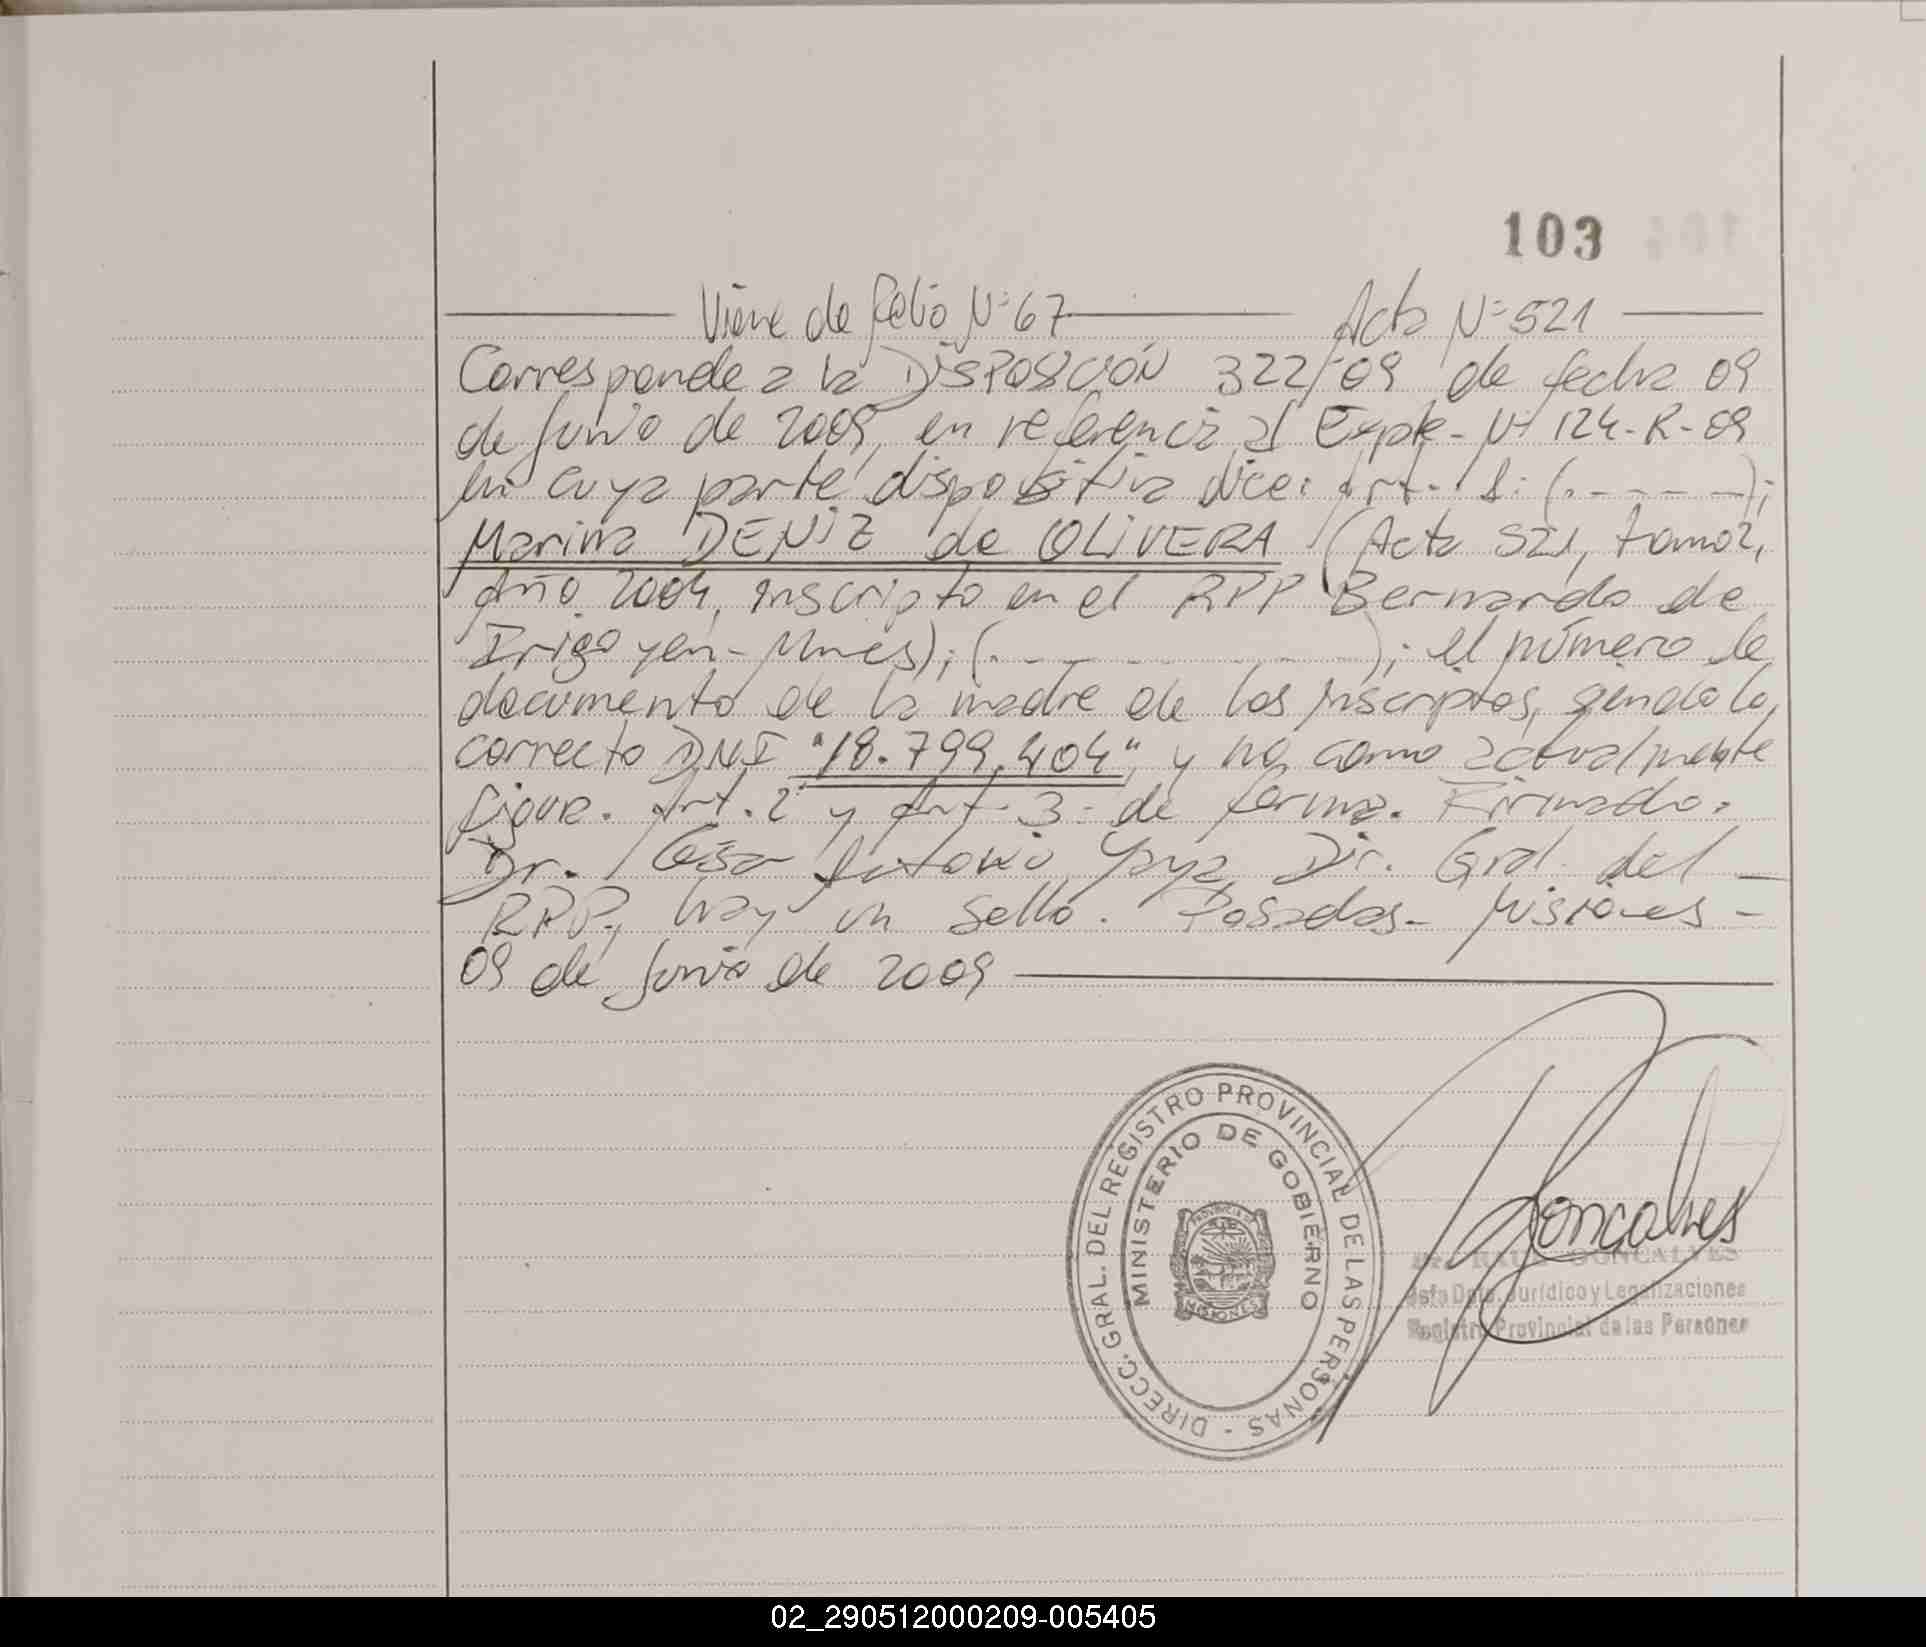 103
Viene de folio Nº 67 Acta Nº 521
Corresponde a la DISPOSICIÓN 322/09 de fecha 09
de Junio de 2009, en referencia al Expte- Nº 124-R-09
en cuya parte dispositiva dice: Art. 1: (.- - - - -);
Marina DENIZ de OLIVERA (Acta 521, tomo 2,
Año 2004, inscripto en el RPP Bernardo de
Irigoyen-Mnes); (.- - - - - -); el número de
documento de la madre de los inscriptos, siendo lo
correcto DNI "18.799.404", y no como actualmente
figura. Art. 2 y Art- 3- de forma. Firmado.
Dr. César Antonio Yaya Dir. Gral. del -
RPP., hay un sello. Posadas- Misiones-
09 de Junio de 2009
DIRECC. GRAL. DEL REGISTRO PROVINCIAL DE LAS PERSONAS -
MINISTERIO DE GOBIERNO
PROVINCIA DE
MISIONES
Goncalves
Dr. RAUL GONCALVES
Jefe Dpto. Jurídico y Legalizaciones
Registro Provincial de las Personas
02_290512000209-005405